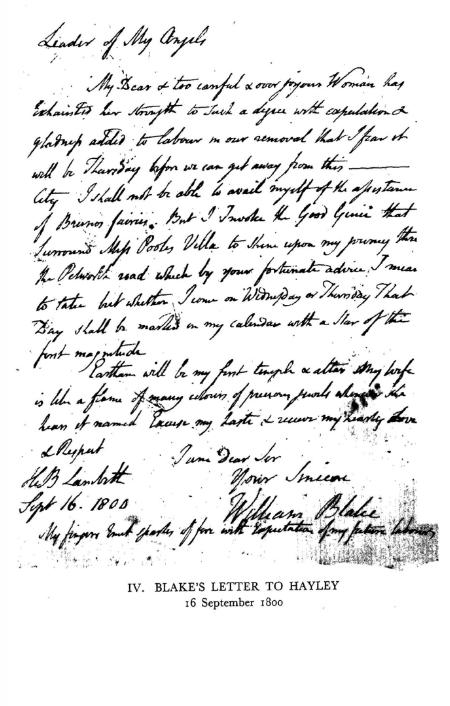 Leader of My Angels
My Dear & too careful & over joyous Woman has
Exhausted her strength to such a degree with expectation &
gladness added to labour in our removal that I fear it
will be Thursday before we can get away from this ———
City I shall not be able to avail myself of the assistance
of Brunos fairies. But I Invoke the Good Genii that
Surround Miss Pooles Villa to shine upon my journey thro
the Petworth road which by your fortunate advice I mean
to take but whether I come on Wednesday or Thursday That
Day shall be marked on my calendar with a Star of the
first magnitude
Eartham will be my first temple & altar My wife
is like a flame of many colours of precious jewels whenever she
hears it named Excuse my haste & recieve my hearty Love
& Respect
I am Dear Sir
H B Lambeth
Your Sincere
Sept 16. 1800
William Blake
My fingers Emit sparks of fire with Expectation of my future labours
IV. BLAKE'S LETTER TO HAYLEY
16 September 1800